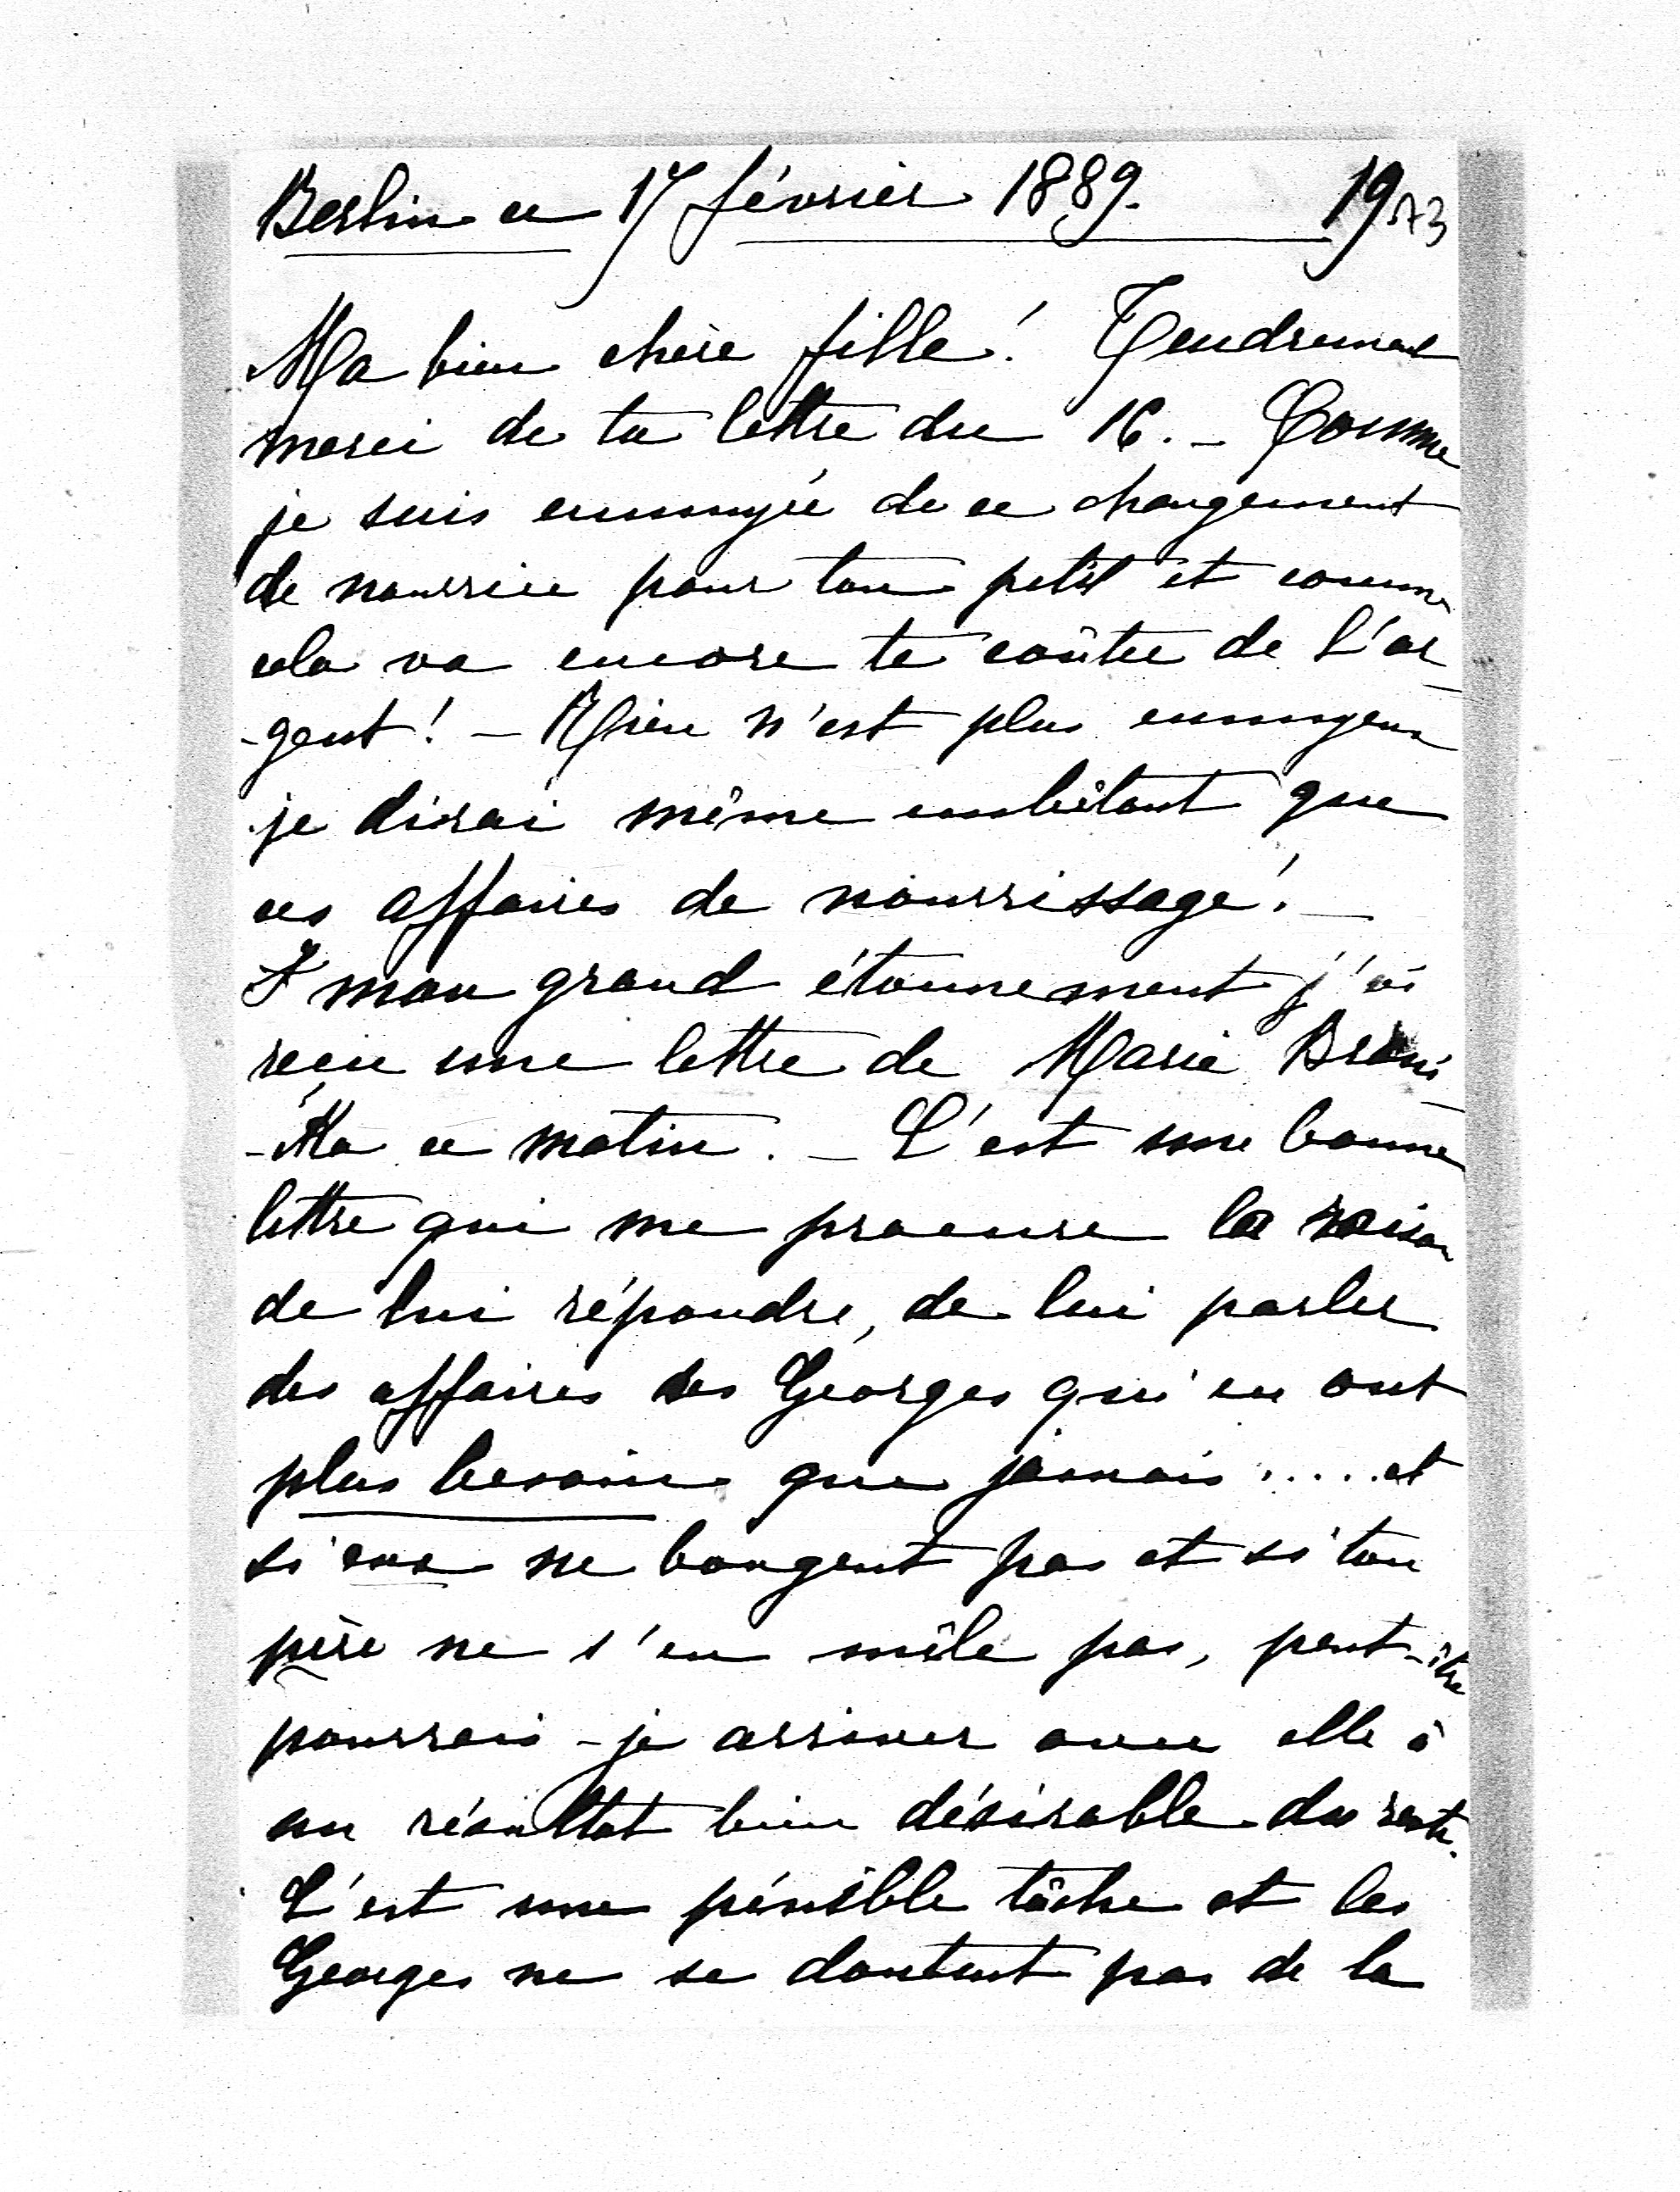 Berlin ce 17 février 1889. 19
Ma bien chère fille! Tendrement
merci de ta lettre du 16. – Comme
je suis ennuyée de ce changement
de nourrice pour ton petit et comme
cela va encore te coûter de l'ar-
-gent! – Rien n'est plus ennuyeux
je dirai même embêtant que
ces affaires de nourrissage! –
A mon grand étonnement j'ai
reçu une lettre de Marie Brani-
-ka ce matin. – C'est une bonne
lettre qui me procure la raison
de lui répondre, de lui parler
des affaires des Georges qui en ont
plus besoin que jamais ..... et
si eux ne bougent pas et si ton
père ne s'en mêle pas, peut-être
pourrais-je arriver avec elle à
un résultat bien désirable du reste.
C'est une pénible tâche et les
Georges ne se doutent pas de la